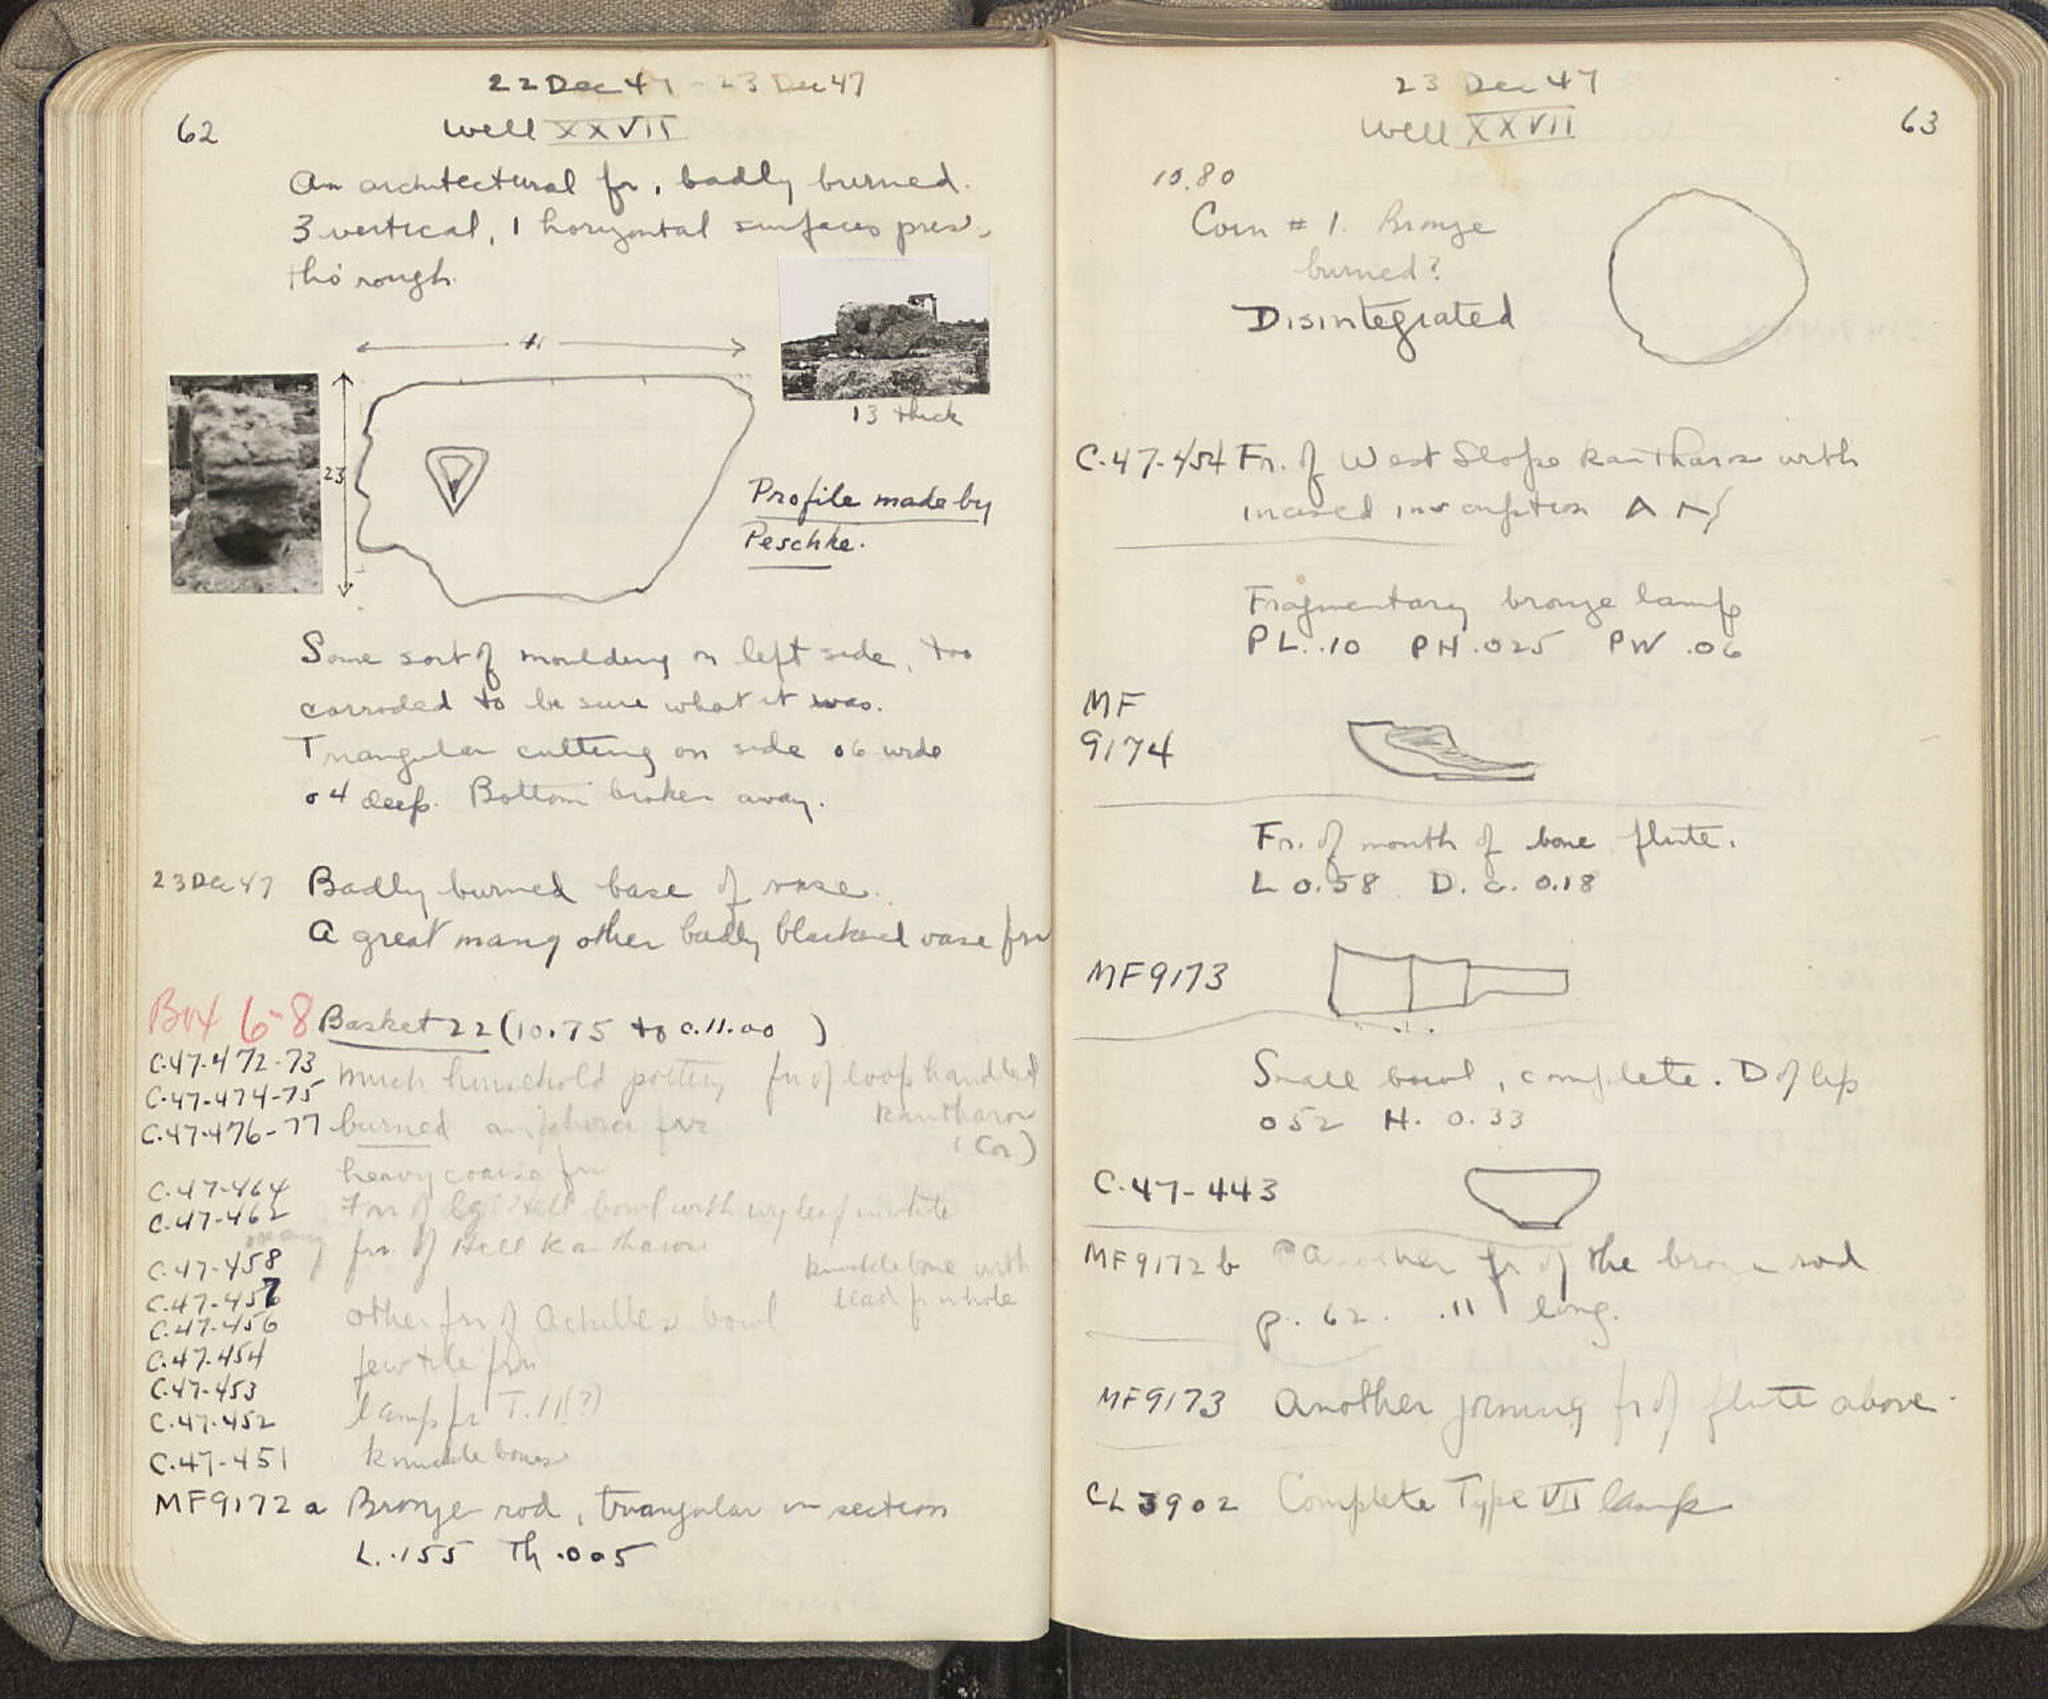 22 Dec 47 - 23 Dec 47
62
Well XXVII
An architectural fr, badly burned.
3 vertical, 1 horizontal surfaces pres.,
tho' rough.
13 thick
23
Profile made by
Peschke.
Some sort of moulding on left side, too
corroded to be sure what it was.
Triangular cutting on side 06 wide
04 deep. Bottom broken away.
23 Dec 47 Badly burned base of vase.
A great many other badly blackened vase frr
Box 6-8 Basket 22 (10.75 to c. 11.00 )
C.47-472-73 much household pottery frr of loop handled
kantharoi
(Cor)
C.47-474-75
C.47-476-77 burned amphora frr
heavy coarse frr
C.47-464
C.47-462 Frr of lg Hell bowl with ivy leaf
many frr. of Hell kantharoi
C.47-458
knucklebone with
lead in hole
C.47-457
C.47-456 other frr of Achilles bowl
C.47-454 few tile frr
C.47-453
C.47-452 lamp fr T. II(?)
C.47-451 knuckle bones
MF9172a Bronze rod, triangular in section
L. .155 Th .005
23 Dec 47
63
Well XXVII
10.80
Coin # 1. Bronze
burned?
Disintegrated
C.47-454 Fr. of West Slope kantharos with
incised inscription
Fragmentary bronze lamp
PL. .10 PH .025 PW .06
MF
9174
Fr. of mouth of bone flute.
L 0.58 D. c. 0.18
MF9173
Small bowl, complete. D of lip
052 H. 0.33
C.47-443
MF9172 b Another fr of the bronze rod
p. 62. .11 long.
MF9173 Another joining fr of flute above.
CL 3902 Complete Type VII lamp